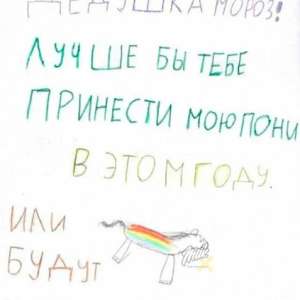 ДЕДУШКА МОРОЗ!
ЛУЧШЕ БЫ ТЕБЕ
ПРИНЕСТИ МОЮ ПОНИ
В ЭТОМ ГОДУ.
ИЛИ
БУДУТ